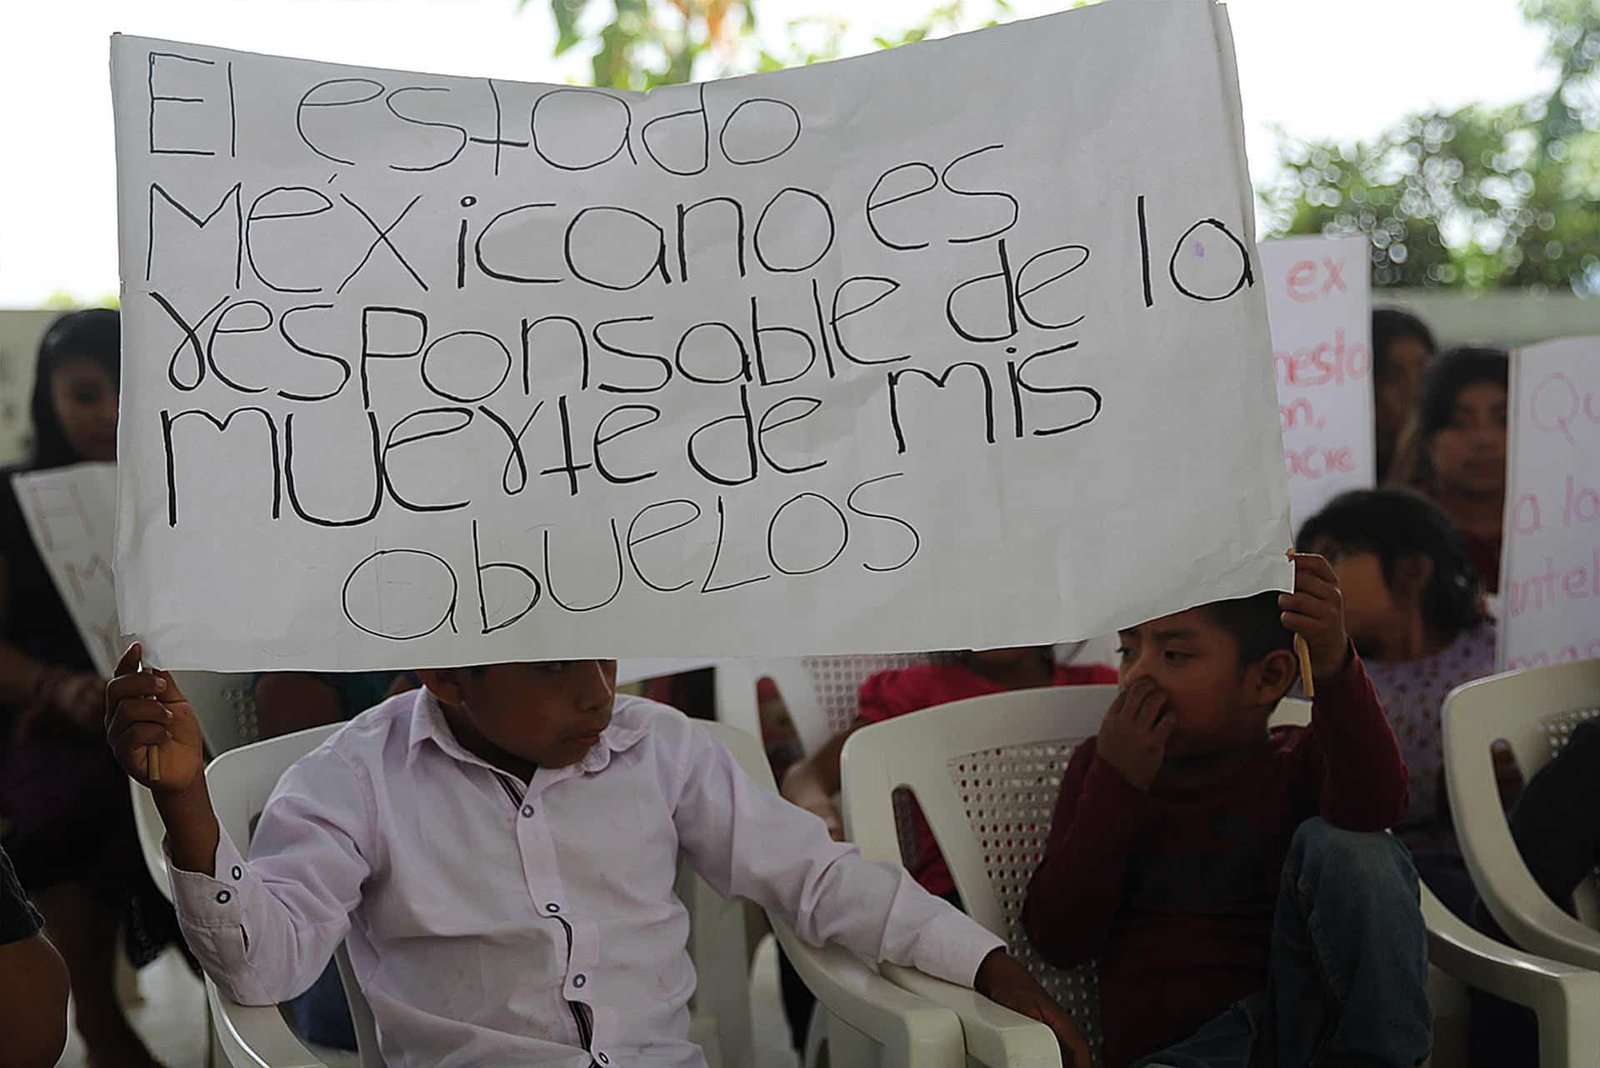 El estado
Méxicano es
responsable de la
muerte de mis
abuelos
ex
on,
Qu
a la
intel